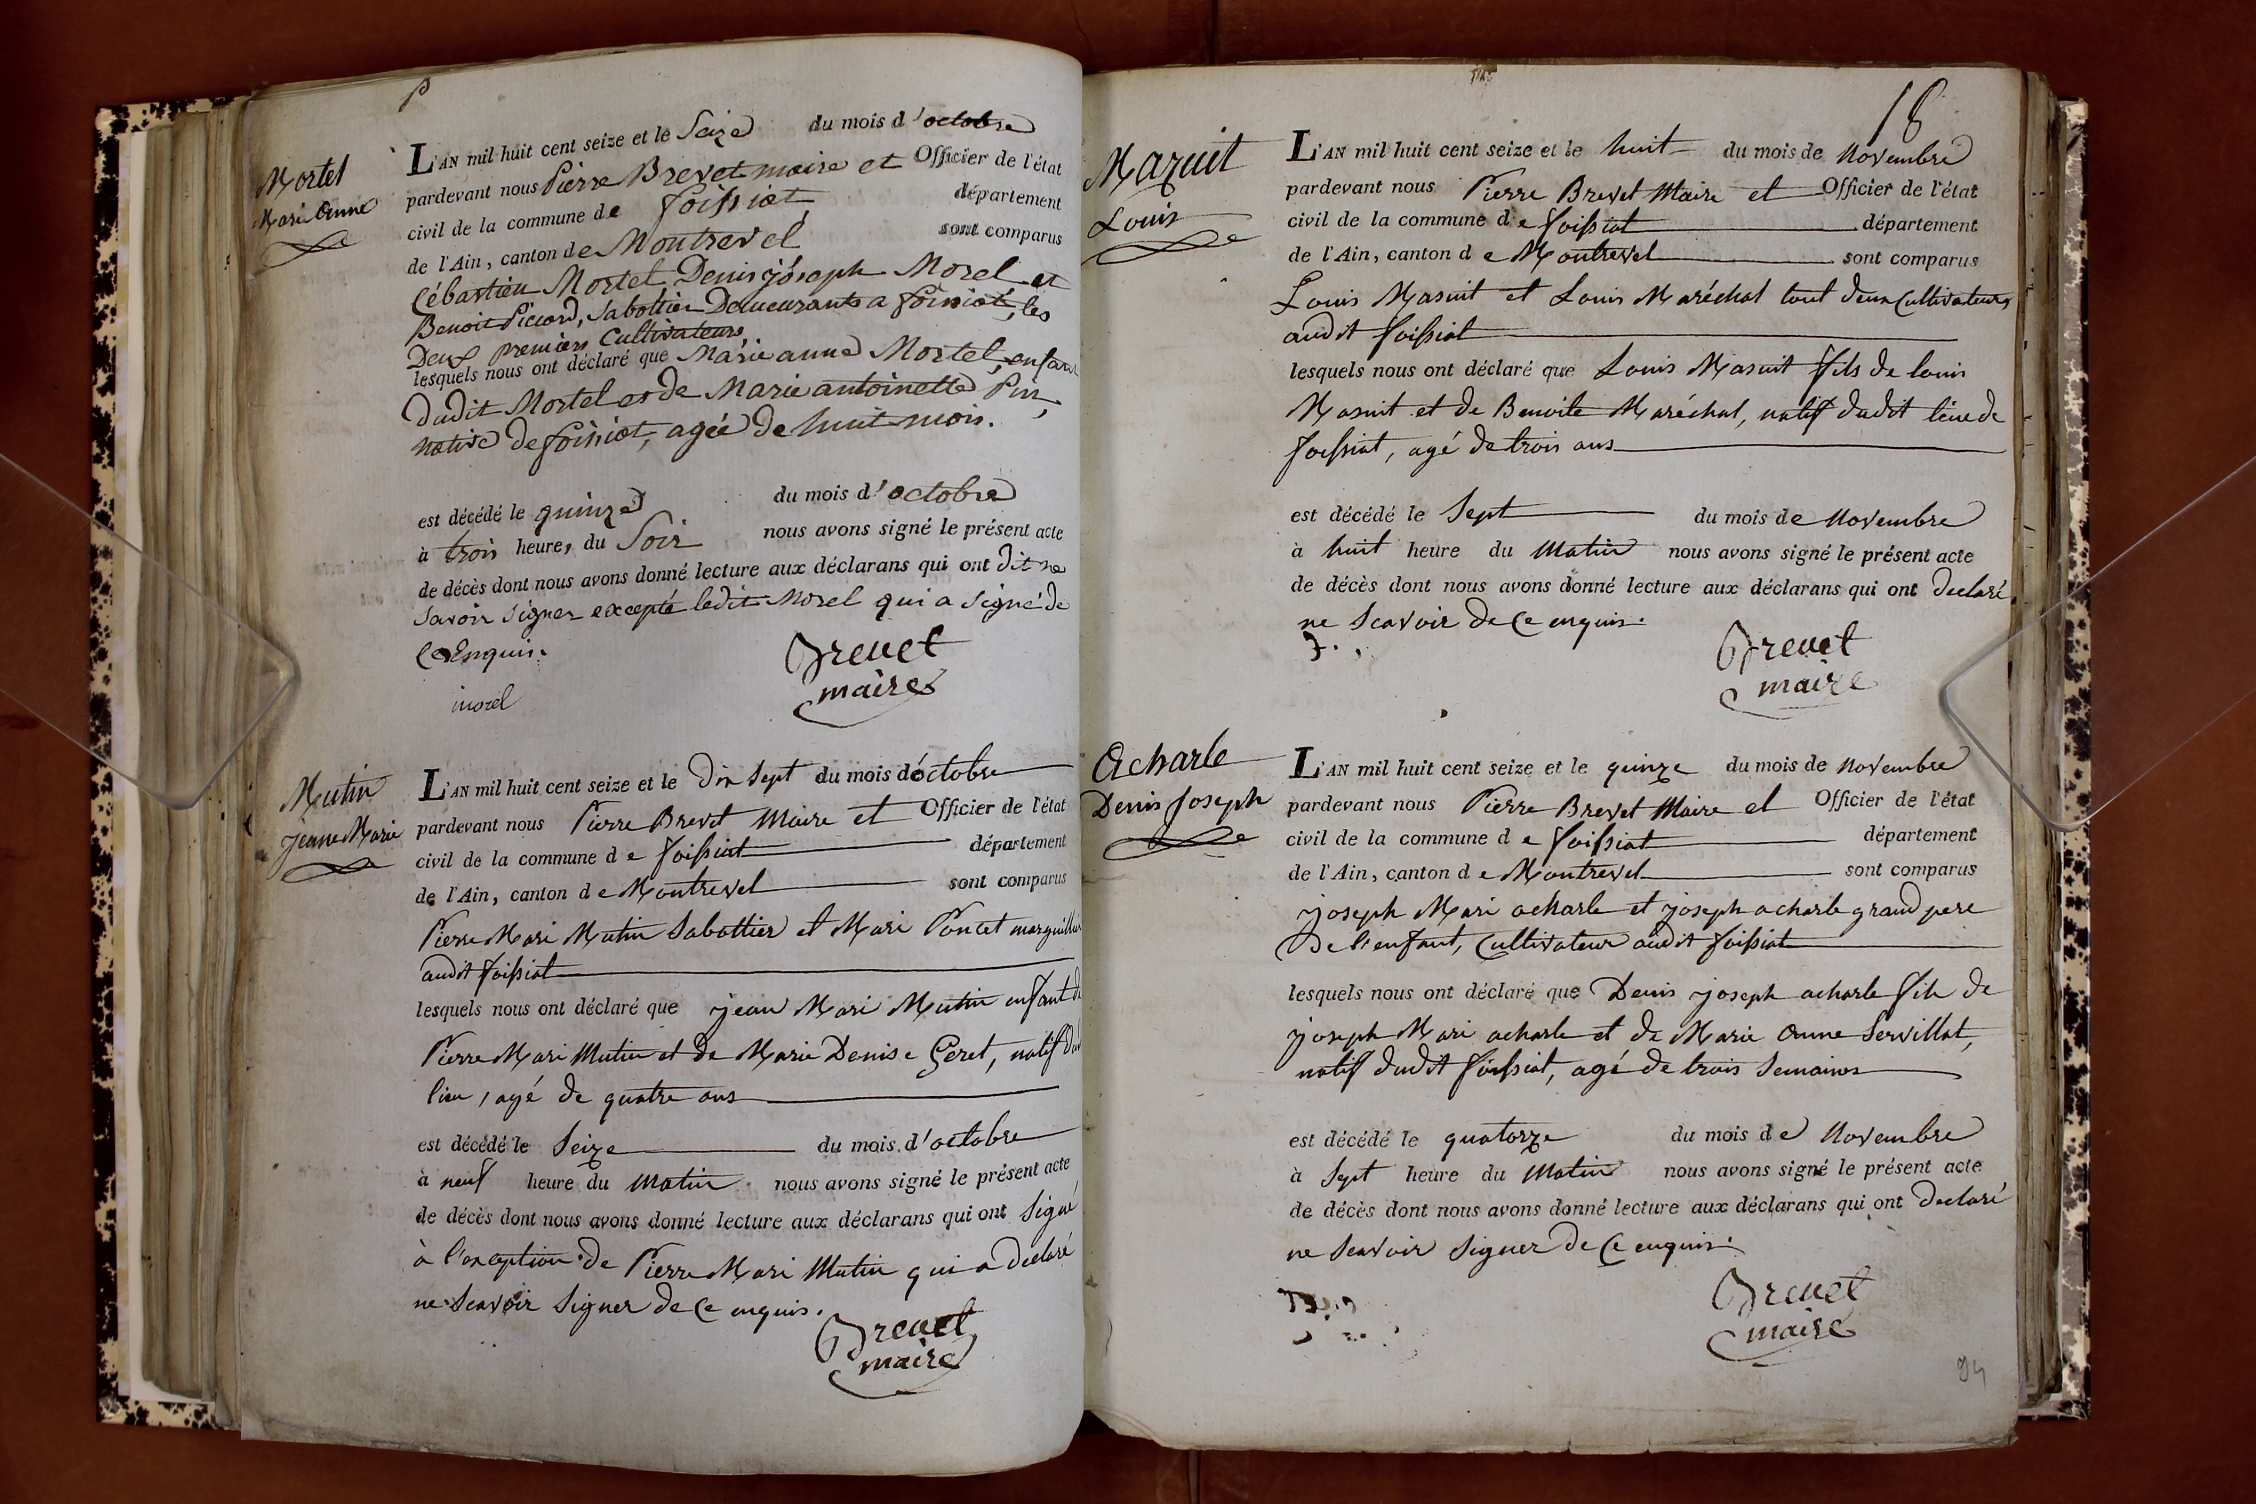 Mortel
Marie Anne
L'AN mil huit cent seize et le Seize du mois d'octobre
pardevant nous Pierre Brevet maire et Officier de l'état
civil de la commune de foissiat département
de l'Ain, canton de Montrevel sont comparus
Cébastien Mortel, Denis joseph Morel et
Benoit Piccard, Sabottier Demeurants a foissiat, les
Deux premiers Cultivateurs
lesquels nous ont déclaré que Marie anne Mortel, enfant
dudit Mortel et de Marie antoinette Pin,
native de foissiat, agée de huit mois.
est décédé le quinze du mois d'octobre
à trois heures du Soir nous avons signé le présent acte
de décès dont nous avons donné lecture aux déclarans qui ont dit ne
Savoir Signer excepté ledit Morel qui a Signé de
Ce Enquis.
morel
Brevet
maire
Mutin
Jeanne Marie
L'AN mil huit cent seize et le Dix Sept du mois d'octobre
pardevant nous Pierre Brevet Maire et Officier de l'état
civil de la commune de foissiat département
de l'Ain, canton de Montrevel sont comparus
Pierre Mari Mutin Sabottier et Mari Poncet marguillier
audit foissiat
lesquels nous ont déclaré que jean Mari Mutin enfant de
Pierre Mari Mutin et de Marie Denise Geret, natif dud
lieu, agé de quatre ans
est décédé le Seize du mois d'octobre
à neuf heure du Matin nous avons signé le présent acte
de décès dont nous avons donné lecture aux déclarans qui ont Signé
à l'exception de Pierre Mari Mutin qui a declaré
ne Scavoir Signer de Ce enquis.
Brevet
maire
18
Mazuit
Louis
L'AN mil huit cent seize et le huit du mois de Novembre
pardevant nous Pierre Brevet Maire et Officier de l'état
civil de la commune de foissiat département
de l'Ain, canton de Montrevel sont comparus
Louis Masuit et Louis Maréchal tout deux Cultivateurs
audit foissiat
lesquels nous ont déclaré que Louis Masuit fils de louis
Masuit et de Benoite Maréchal, natif dudit lieu de
foissiat, agé de trois ans
est décédé le Sept du mois de Novembre
à huit heure du Matin nous avons signé le présent acte
de décès dont nous avons donné lecture aux déclarans qui ont declaré
ne Scavoir de Ce enquis.
Brevet
maire
Acharle
Denis Joseph
L'AN mil huit cent seize et le quinze du mois de Novembre
pardevant nous Pierre Brevet Maire et Officier de l'état
civil de la commune de foissiat département
de l'Ain, canton de Montrevel sont comparus
joseph Mari acharle et joseph acharle grand pere
De l'enfant, Cultivateur audit foissiat
lesquels nous ont déclaré que Denis joseph acharle fils de
joseph Mari acharle et de Marie Anne Servillat,
natif dudit foissiat, agé de trois Semaines
est décédé le quatorze du mois de Novembre
à Sept heure du Matin nous avons signé le présent acte
de décès dont nous avons donné lecture aux déclarans qui ont declaré
ne Scavoir Signer de Ce enquis.
Brevet
maire